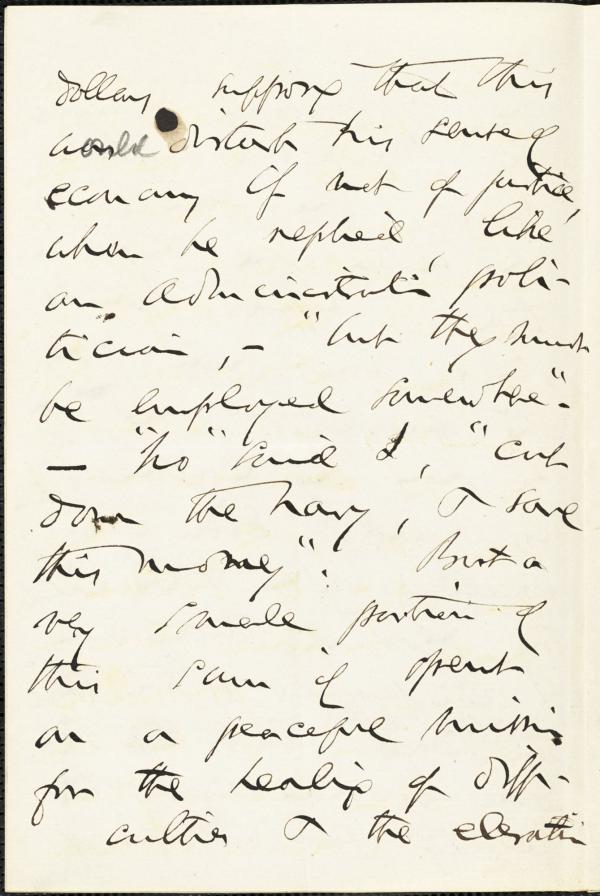 dollars supposing that this
would disturb his sense of
economy if not of justice,
when he replied, like
an administration poli-
tician, – "but they must
be employed somewhere" –
— "No" said I, "cut
down the navy, & save
this money". But a
very small portion of
this sum if spent
on a peaceful mission
for the healing of diffi-
culties & the elevation